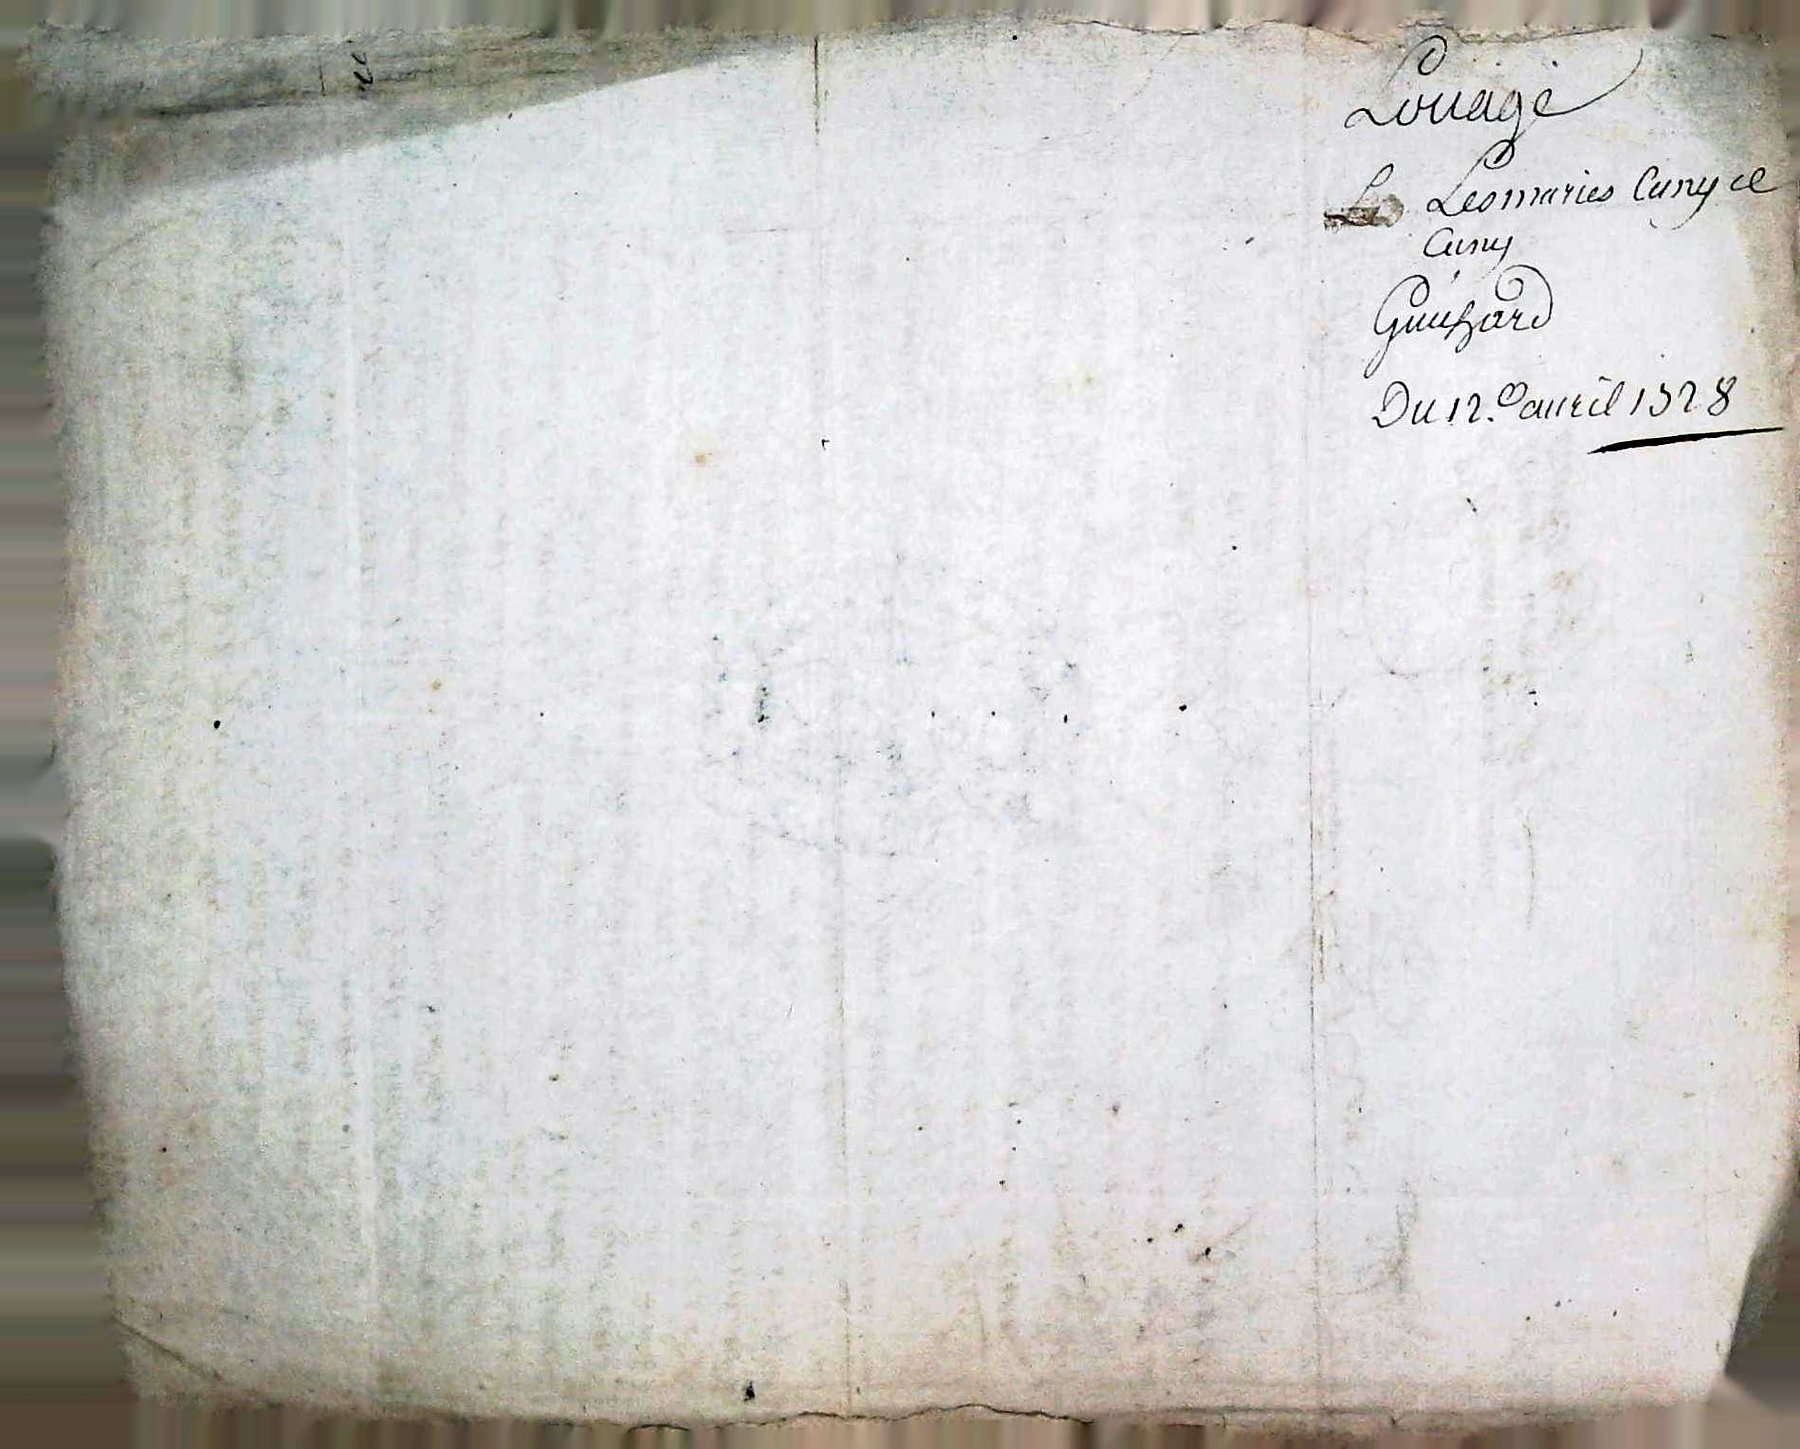 Louage
Les mariés Cuny et
Cuny
Guichard
Du 12. avril 1328